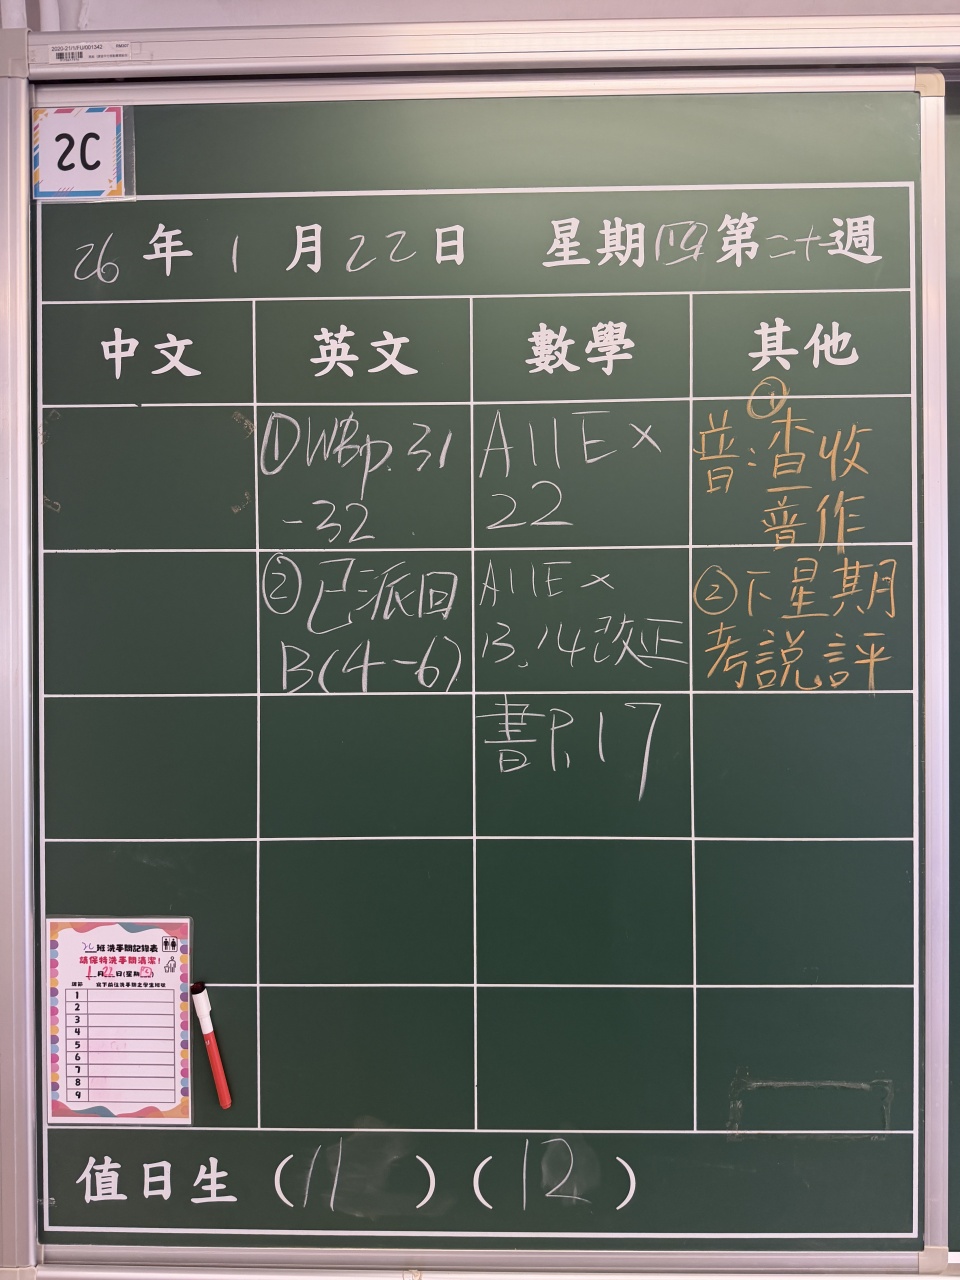 2020-21/1/FU/001342
RM207
2C
26年1月22日 星期四第二十週
中文 英文 數學 其他
①WBp.31
-32
AllEx
22
①
普:查收
普作
②已派回
B(4-6)
AllEx
13.14改正
②下星期
考說評
書P.17
2C班洗手間記錄表
請保持洗手間清潔!
1月22日(星期四)
課節
1
2
3
4
5
6
7
8
9
值日生(11)(12)